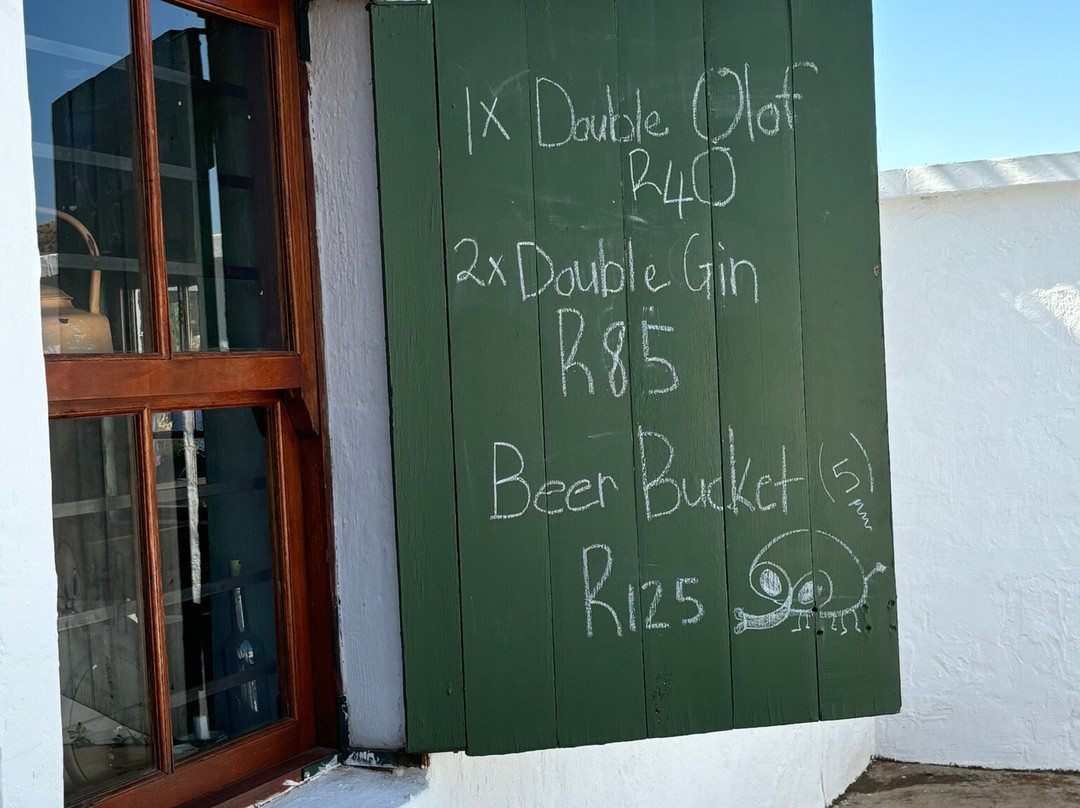 1x Double Olof
R40
2x Double Gin
R85
Beer Bucket (5)
R125